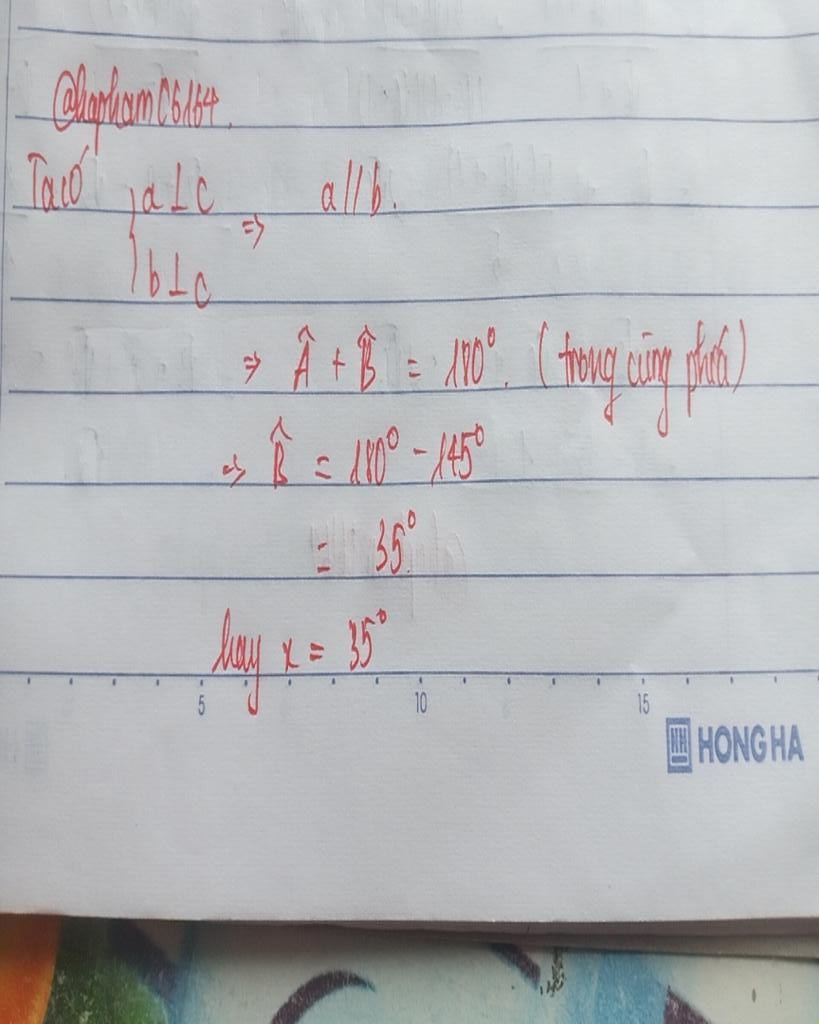 @hapham06164.
Ta có { a ⊥ c ⇒ a // b.
b ⊥ c
⇒ Â + B̂ = 180°. (trong cùng phía)
⇒ B̂ = 180° - 145°
= 35°
hay x = 35°
5 10 15
NH HONG HA